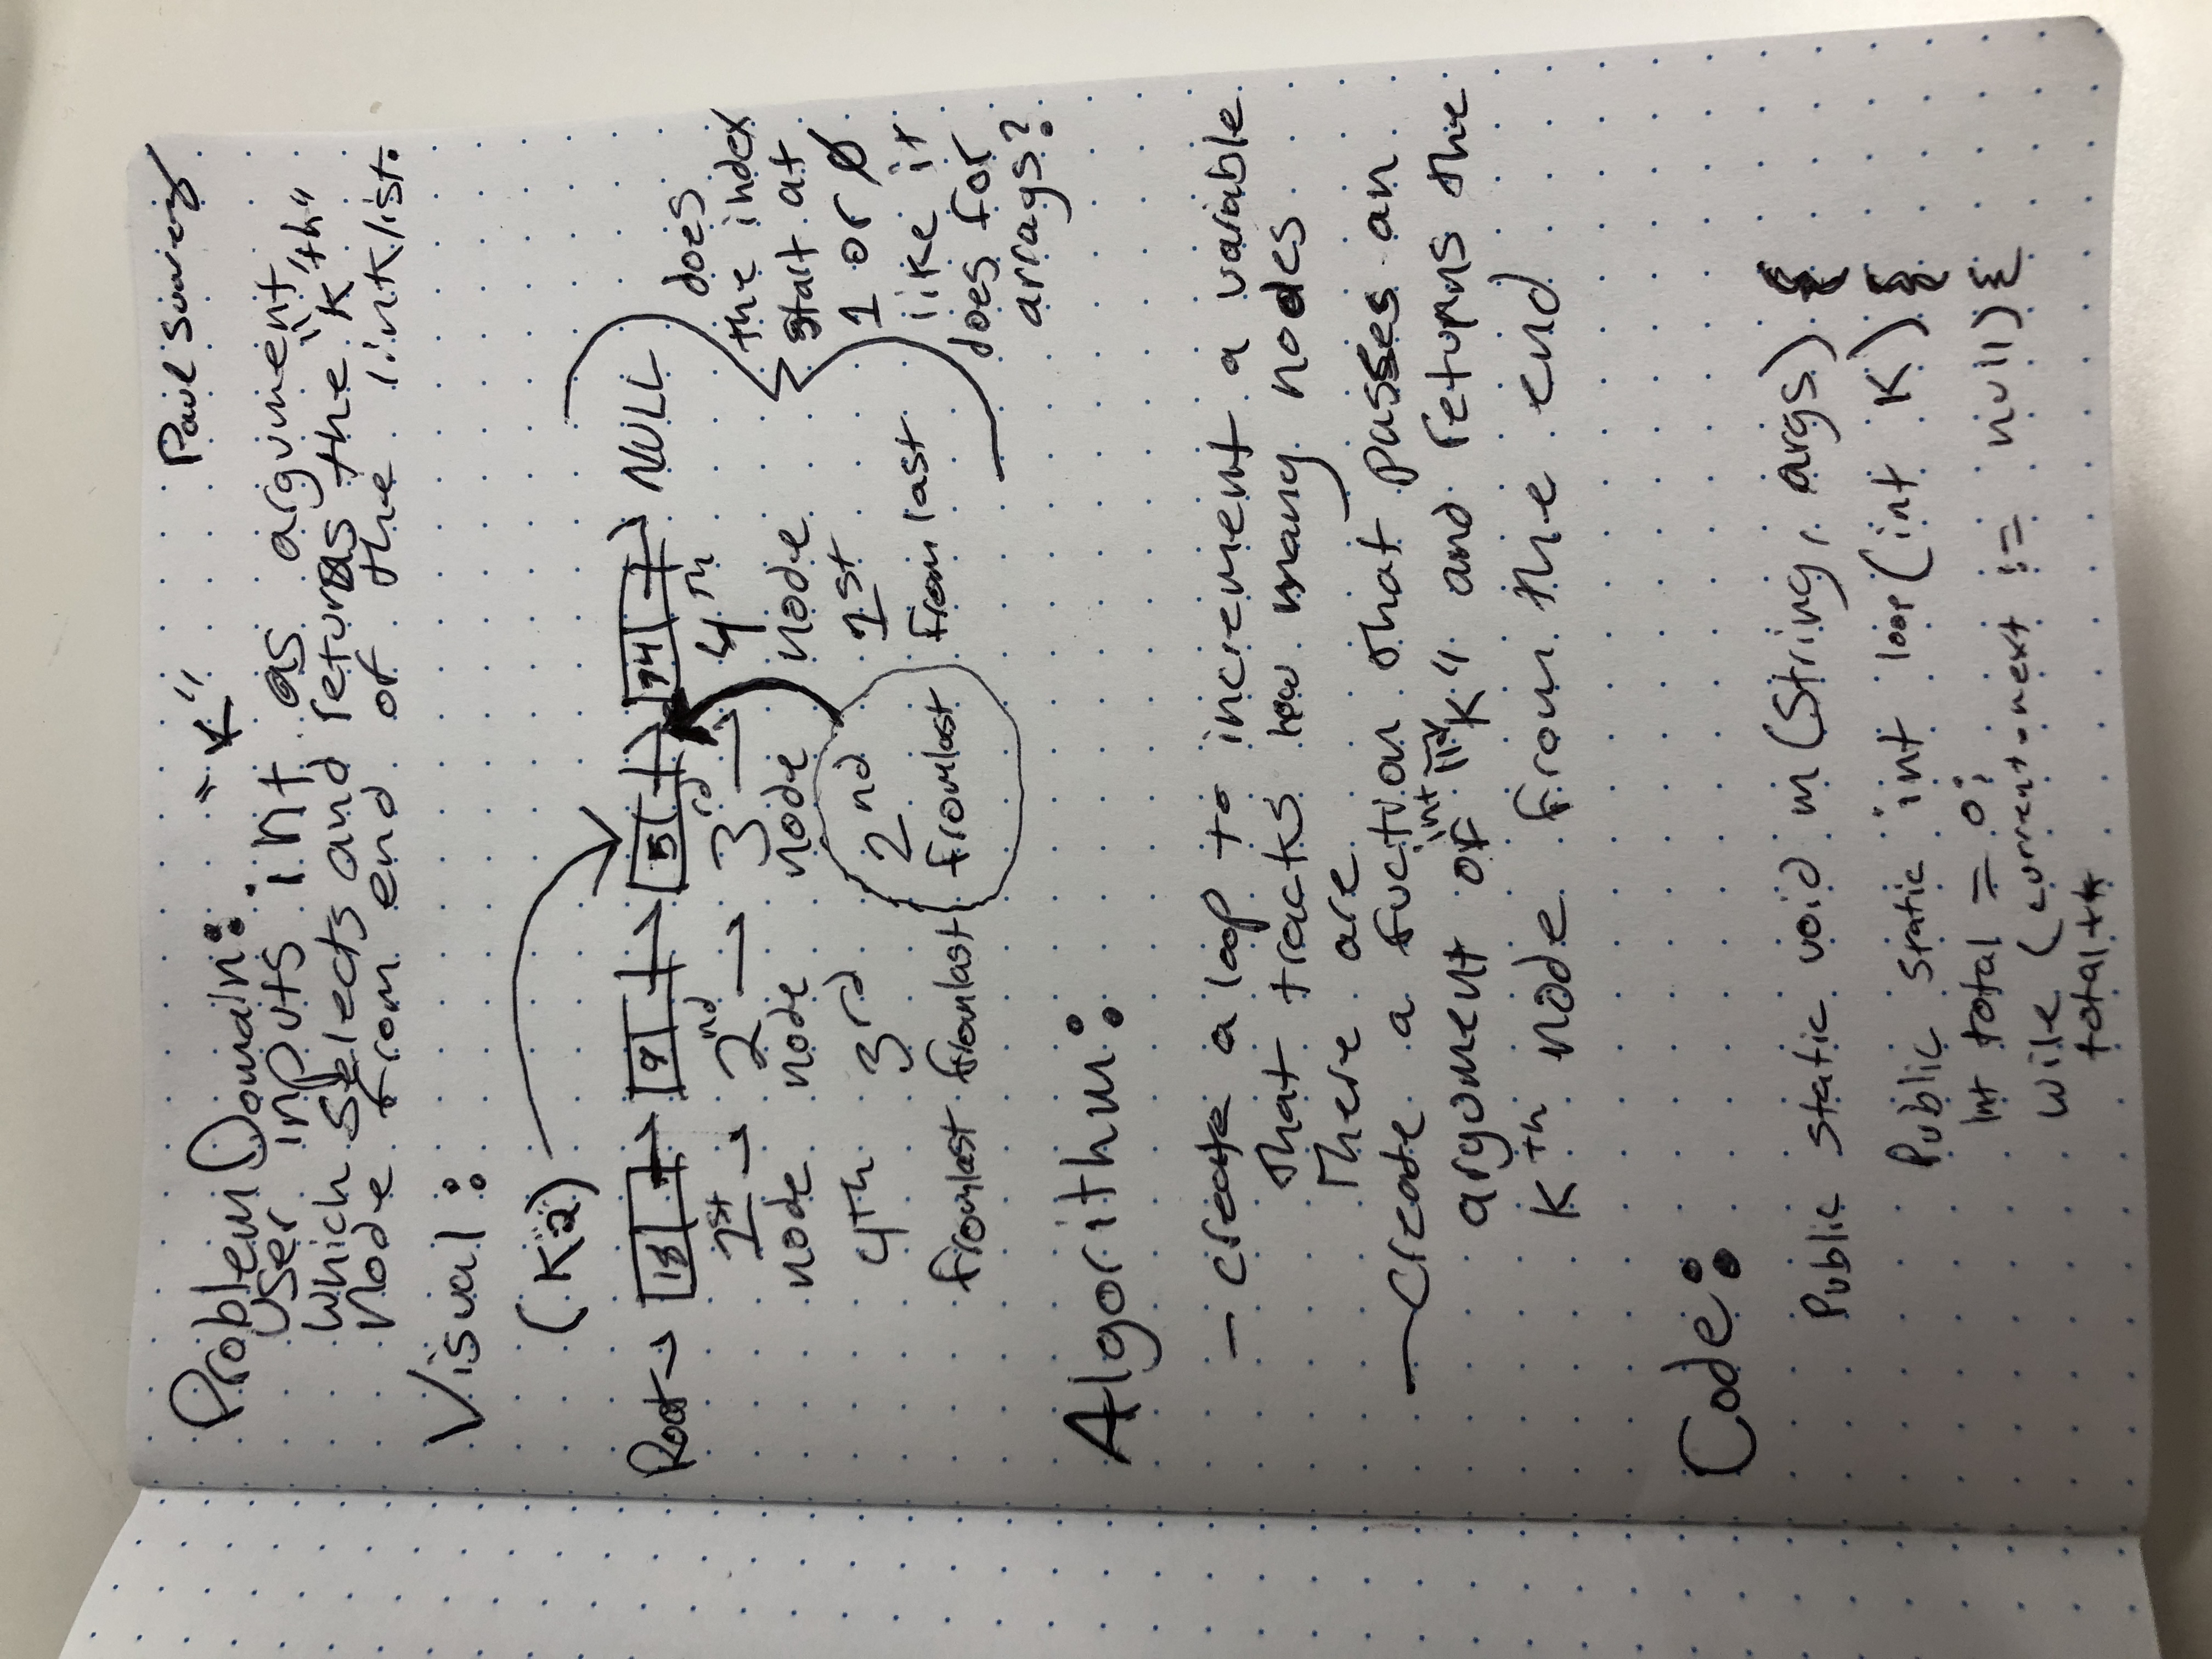 Paul Suarez
Problem Domain:
"K"
User inputs int as argument,
which selects and returns the "K"th"
Node from end of the linklist.
Visual:
(K"2")
Root→ 13 → 9 → 5 → NULL
1st → 2nd → 3rd → 4th
node node node node
4th 3rd 2nd 1st
from last from last from last from last
does
the index
start at
1 or Ø
like it
does for
arrays?
Algorithm:
- create a loop to increment a variable
that tracks how many nodes
there are
- create a fuction that passes an
int
argument of "K" and returns the
Kth node from the end
Code:
Public static void m(String, args) {
Public static int loop(int K) {
Int total = 0;
wile (current.next != null) {
total++